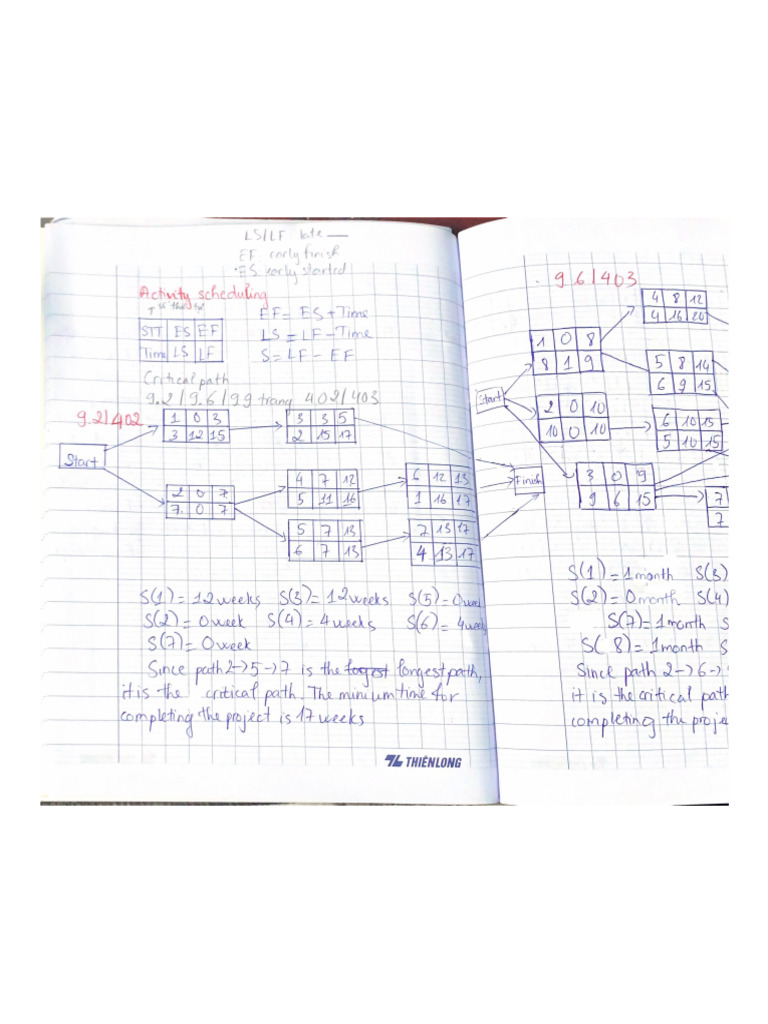 LS/LF late
EF early finish
ES early started
Activity scheduling
EF = ES + Time
LS = LF - Time
S = LF - EF
STT ES EF
Time LS LF
Critical path
9.2 / 9.6 / 9.9 trang 402/403
9.2/402
Start
1 0 3
3 12 15
3 3 5
2 15 17
2 0 7
7 0 7
4 7 12
5 11 16
6 12 13
1 16 17
5 7 13
6 7 13
7 13 17
4 13 17
Finish
S(1) = 12 weeks S(3) = 12 weeks S(5) = 0 week
S(2) = 0 week S(4) = 4 weeks S(6) = 4 weeks
S(7) = 0 week
Since path 2→5→7 is the longest path,
it is the critical path. The minium time for
completing the project is 17 weeks
THIÊN LONG
9.6/403
Start
1 0 8
8 1 9
4 8 12
4 16 20
5 8 14
6 9 15
2 0 10
10 0 10
6 10 15
5 10 15
3 0 9
9 6 15
7
7
S(1) = 1 month S(3)
S(2) = 0 month S(4)
S(7) = 1 month S
S(8) = 1 month S
Since path 2→6→
it is the critical path
completing the proje